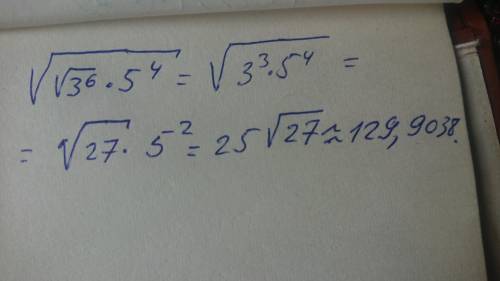 √(√3⁶ · 5⁴) = √(3³ · 5⁴) =
= √27 · 5² = 25 √27 ≈ 129,9038.